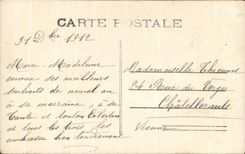 CARTE POSTALE
31 Dbre 1912
Marie Madeleine
envoie ses meilleurs
souhaits de nouvel an
à sa marraine, à sa
tante et tonton Célestin
et tous les trois les
embrasse bien tendrement
Mademoiselle Thionnet
24 Rue du Verger
Châtellerault
Vienne